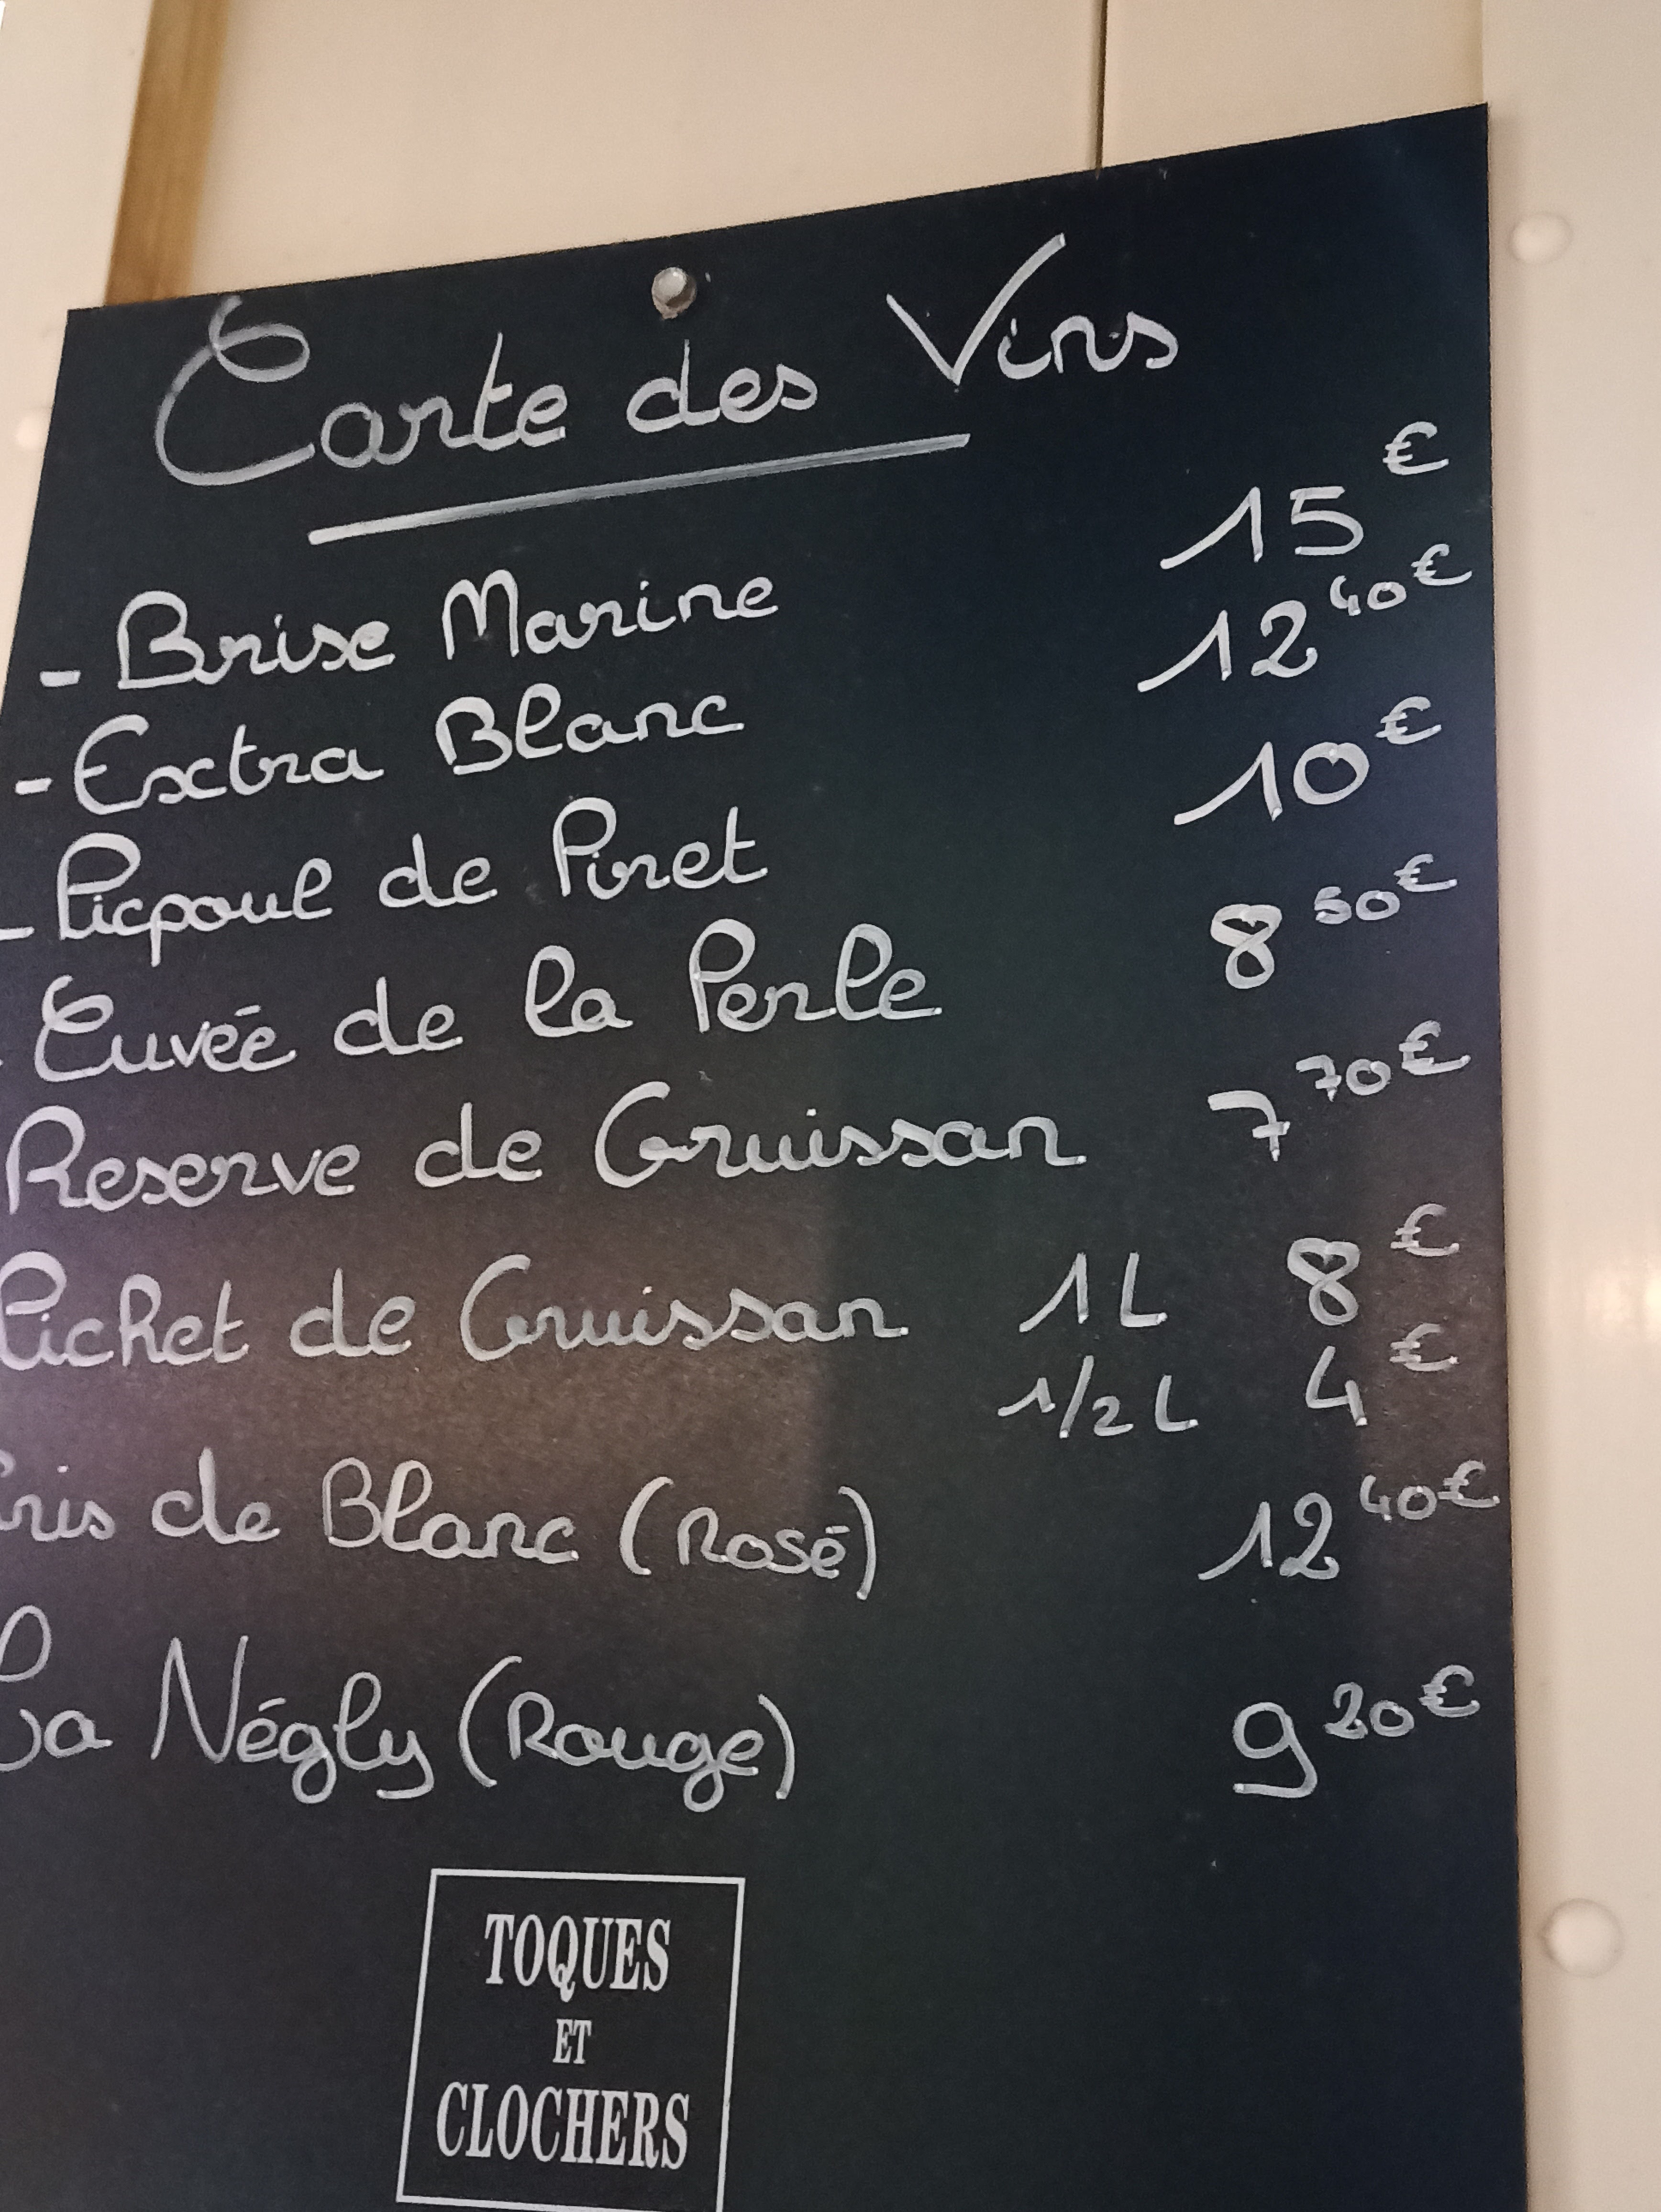 Carte des Vins
- Brise Marine 15 €
- Extra Blanc 12 40€
- Picpoul de Pinet 10 €
- Cuvée de la Perle 8 50€
Reserve de Gruissan 7 70€
Pichet de Gruissan 1L 8 €
1/2 L 4 €
Gris de Blanc (Rosé) 12 40€
La Négly (Rouge) 9 20€
TOQUES
ET
CLOCHERS